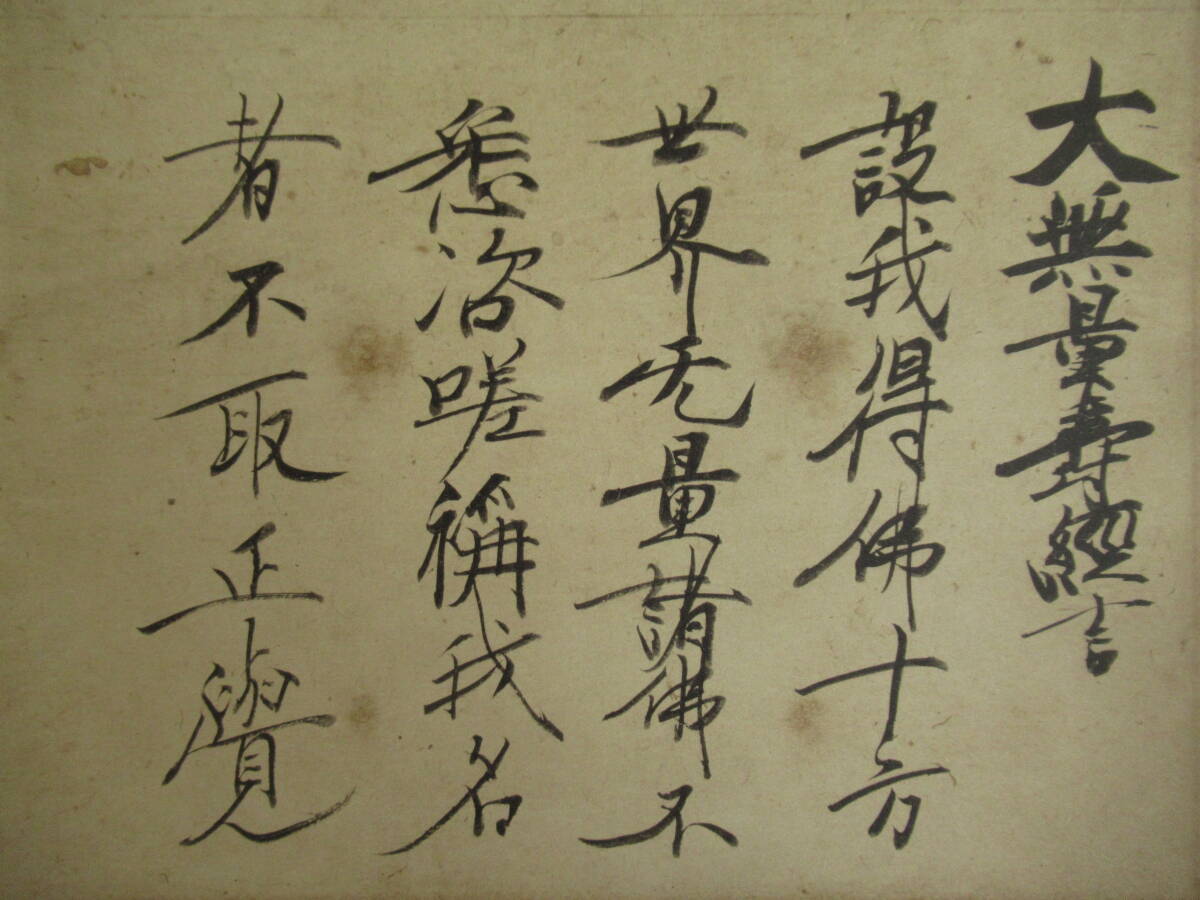 大無量壽經言
設我得佛十方
世界无量諸佛不
悉咨嗟稱我名
者不取正覺